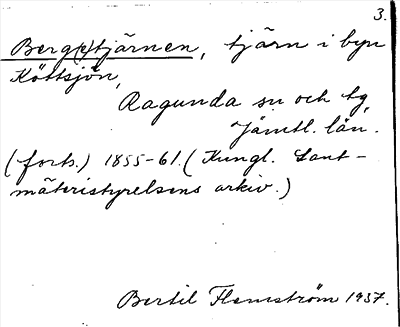 3.
Berg(s)tjärnen, tjärn i byn
Köttsjön,
Ragunda sn och tg,
Jämtl. län.
(forts.) 1855-61. (Kungl. Lant-
mäteristyrelsens arkiv.)
Bertil Flemström 1937.